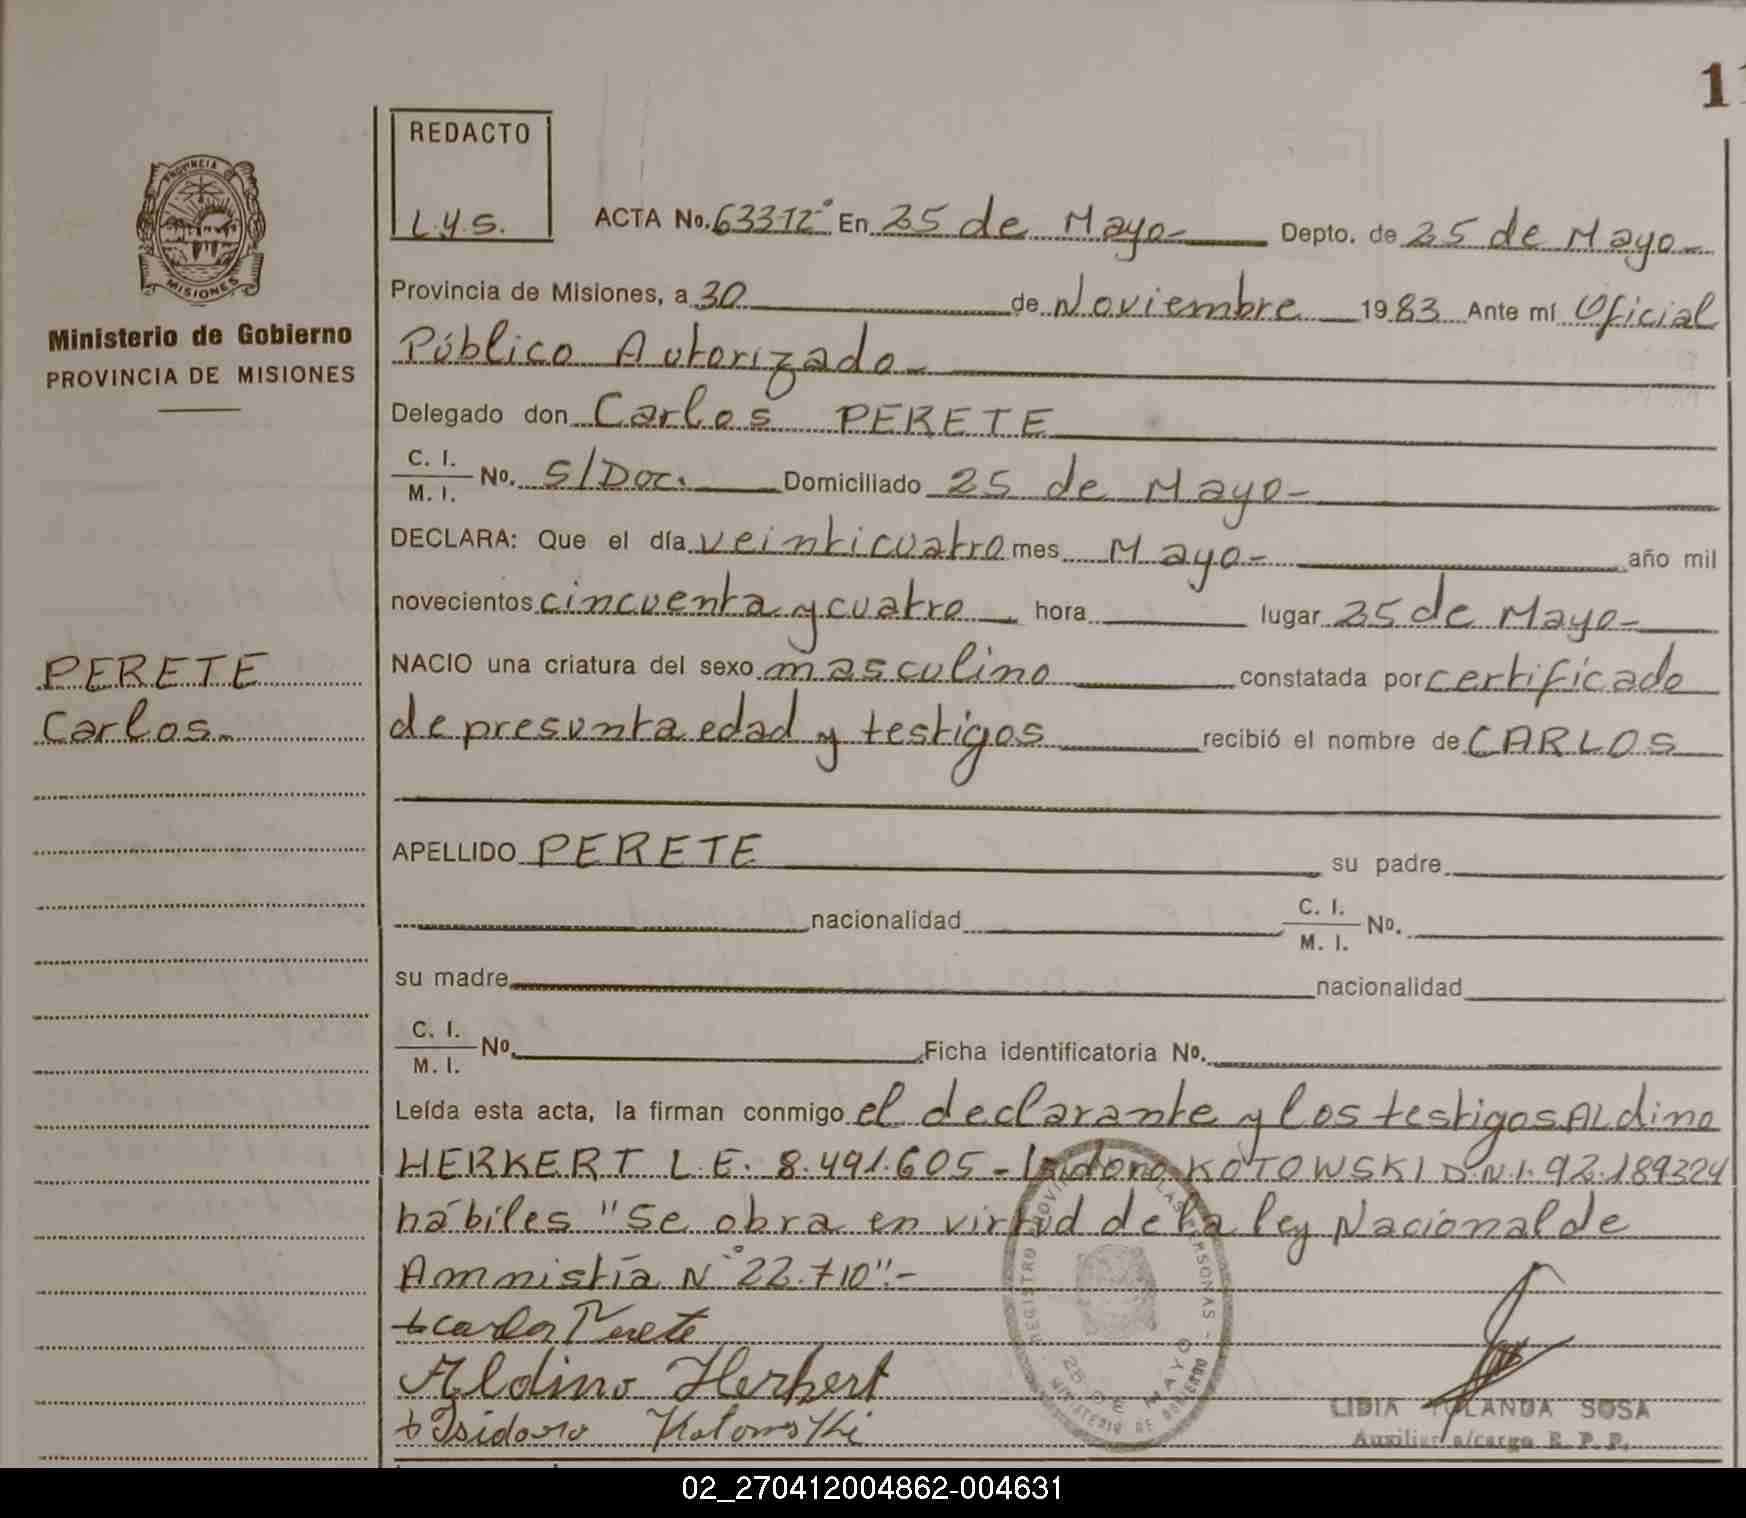 11
REDACTO
L.Y.S.
PROVINCIA
MISIONES
Ministerio de Gobierno
PROVINCIA DE MISIONES
ACTA No. 63312° En 25 de Mayo- Depto. de 25 de Mayo-
Provincia de Misiones, a 30 de Noviembre 1983 Ante mí Oficial
Público Autorizado-
Delegado don Carlos PERETE
C. I.
M. I. No. S/Doc. Domiciliado 25 de Mayo-
DECLARA: Que el día veinticuatro mes Mayo- año mil
novecientos cincuenta y cuatro hora lugar 25 de Mayo-
PERETE
Carlos.-
NACIO una criatura del sexo masculino constatada por certificado
de presunta edad y testigos recibió el nombre de CARLOS
APELLIDO PERETE su padre
nacionalidad C. I.
M. I. No.
su madre nacionalidad
C. I.
M. I. No. Ficha identificatoria No.
Leída esta acta, la firman conmigo el declarante y los testigos ALdino
HERKERT L.E. 8.491.605- Isidoro KOTOWSKI D.N.I. 92.189324
hábiles "Se obra en virtud de la ley Nacional de
Amnistía N° 22.710".-
Carlos Perete
Aldino Herkert
Isidoro Kotowski
MINISTERIO DE GOBIERNO
25 DE MAYO
LIDIA YOLANDA SOSA
Auxiliar a/cargo R. P. P.
02_270412004862-004631